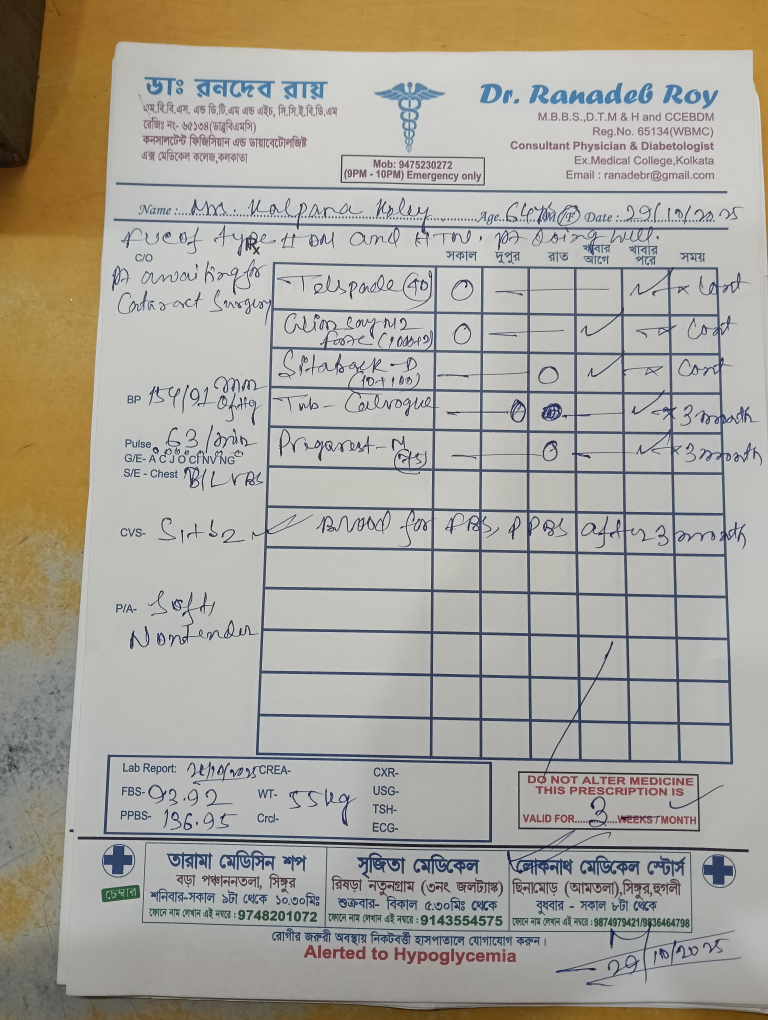 ডাঃ রনদেব রায়
এম.বি.বি.এস. এন্ড ডি.টি.এম এন্ড এইচ, সি.সি.ই.বি.ডি.এম
রেজিঃ নং- ৬৫১৩৪(ডাব্লুবিএমসি)
কনসালটেন্ট ফিজিসিয়ান এন্ড ডায়াবেটোলজিষ্ট
এক্স মেডিকেল কলেজ,কলকাতা
Mob: 9475230272
(9PM - 10PM) Emergency only
Dr. Ranadeb Roy
M.B.B.S.,D.T.M & H and CCEBDM
Reg.No. 65134(WBMC)
Consultant Physician & Diabetologist
Ex.Medical College,Kolkata
Email : ranadebr@gmail.com
Name : Mrs. Kalpana Koley Age 64 M/F Date : 29/10/2025
of type II DM and HTN. Pt doing well.
C/O Rx সকাল দুপুর রাত খাবার আগে খাবার পরে সময়
Pt awaiting for
Cataract Surgery
Telspade (40) Cont
M2
forte (1000+2) Cont
Sitaback-D
(10+100) Cont
BP 154/91 mm of Hg
Tab- 3 month
Pulse 63/min
-M
(75) 3 month
G/E- A C J O Cl NV NG
S/E - Chest B/L VBS
CVS- S1+S2
Blood for FBS, PPBS after 3 month
P/A- Soft,
Nontender
Lab Report: 28/10/2025 CREA- CXR-
FBS- 93.92 WT- 55kg USG-
TSH-
PPBS- 136.95 Crcl- ECG-
DO NOT ALTER MEDICINE
THIS PRESCRIPTION IS
VALID FOR....3....WEEKS / MONTH
চেম্বার
তারামা মেডিসিন শপ
বড়া পঞ্চাননতলা, সিঙ্গুর
শনিবার-সকাল ৯টা থেকে ১০.৩০মিঃ
ফোনে নাম লেখান এই নম্বরে : 9748201072
সৃজিতা মেডিকেল
রিষড়া নতুনগ্রাম (৩নং জলট্যাঙ্ক)
শুক্রবার- বিকাল ৫.৩০মিঃ থেকে
ফোনে নাম লেখান এই নম্বরে : 9143554575
লোকনাথ মেডিকেল স্টোর্স
ছিনামোড় (আমতলা),সিঙ্গুর,হুগলী
বুধবার - সকাল ৮টা থেকে
ফোনে নাম লেখান এই নম্বরে : 9874979421/9836464798
রোগীর জরুরী অবস্থায় নিকটবর্ত্তী হাসপাতালে যোগাযোগ করুন।
Alerted to Hypoglycemia
29/10/2025